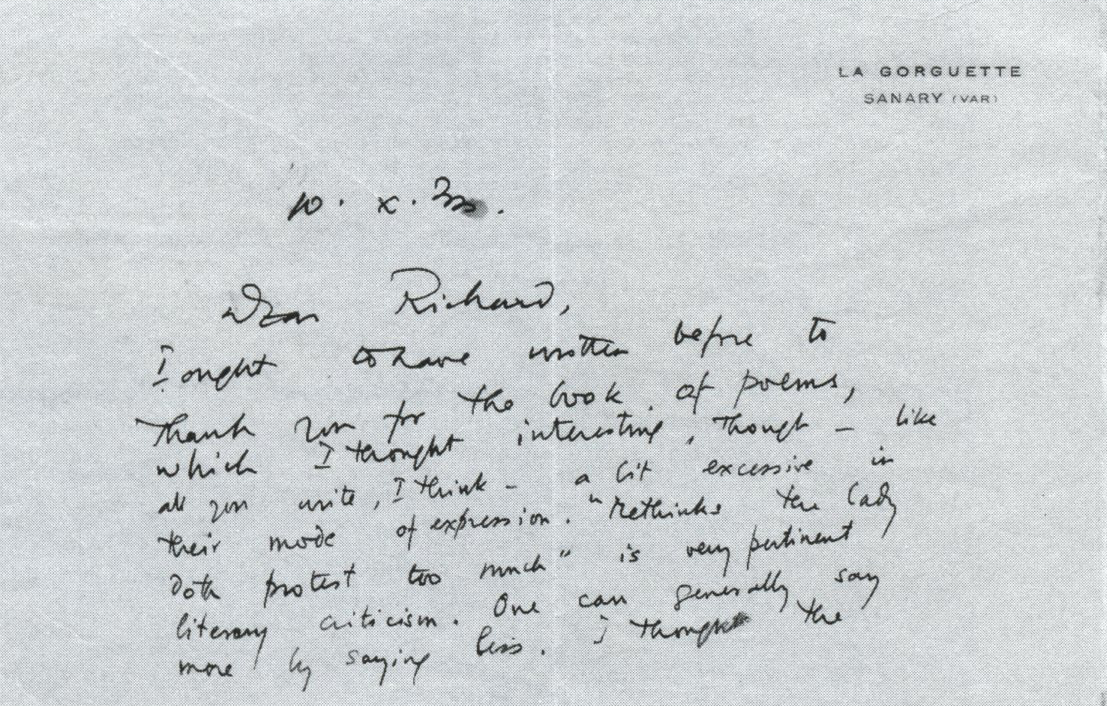 LA GORGUETTE
SANARY (VAR)
10. X.
Dear Richard,
I ought to have written before to
thank you for the book of poems,
which I thought interesting, though – like
all you write, I think – a bit excessive in
their mode of expression. "Methinks the lady
doth protest too much" is very pertinent
literary criticism. One can generally say
more by saying less. I thought the